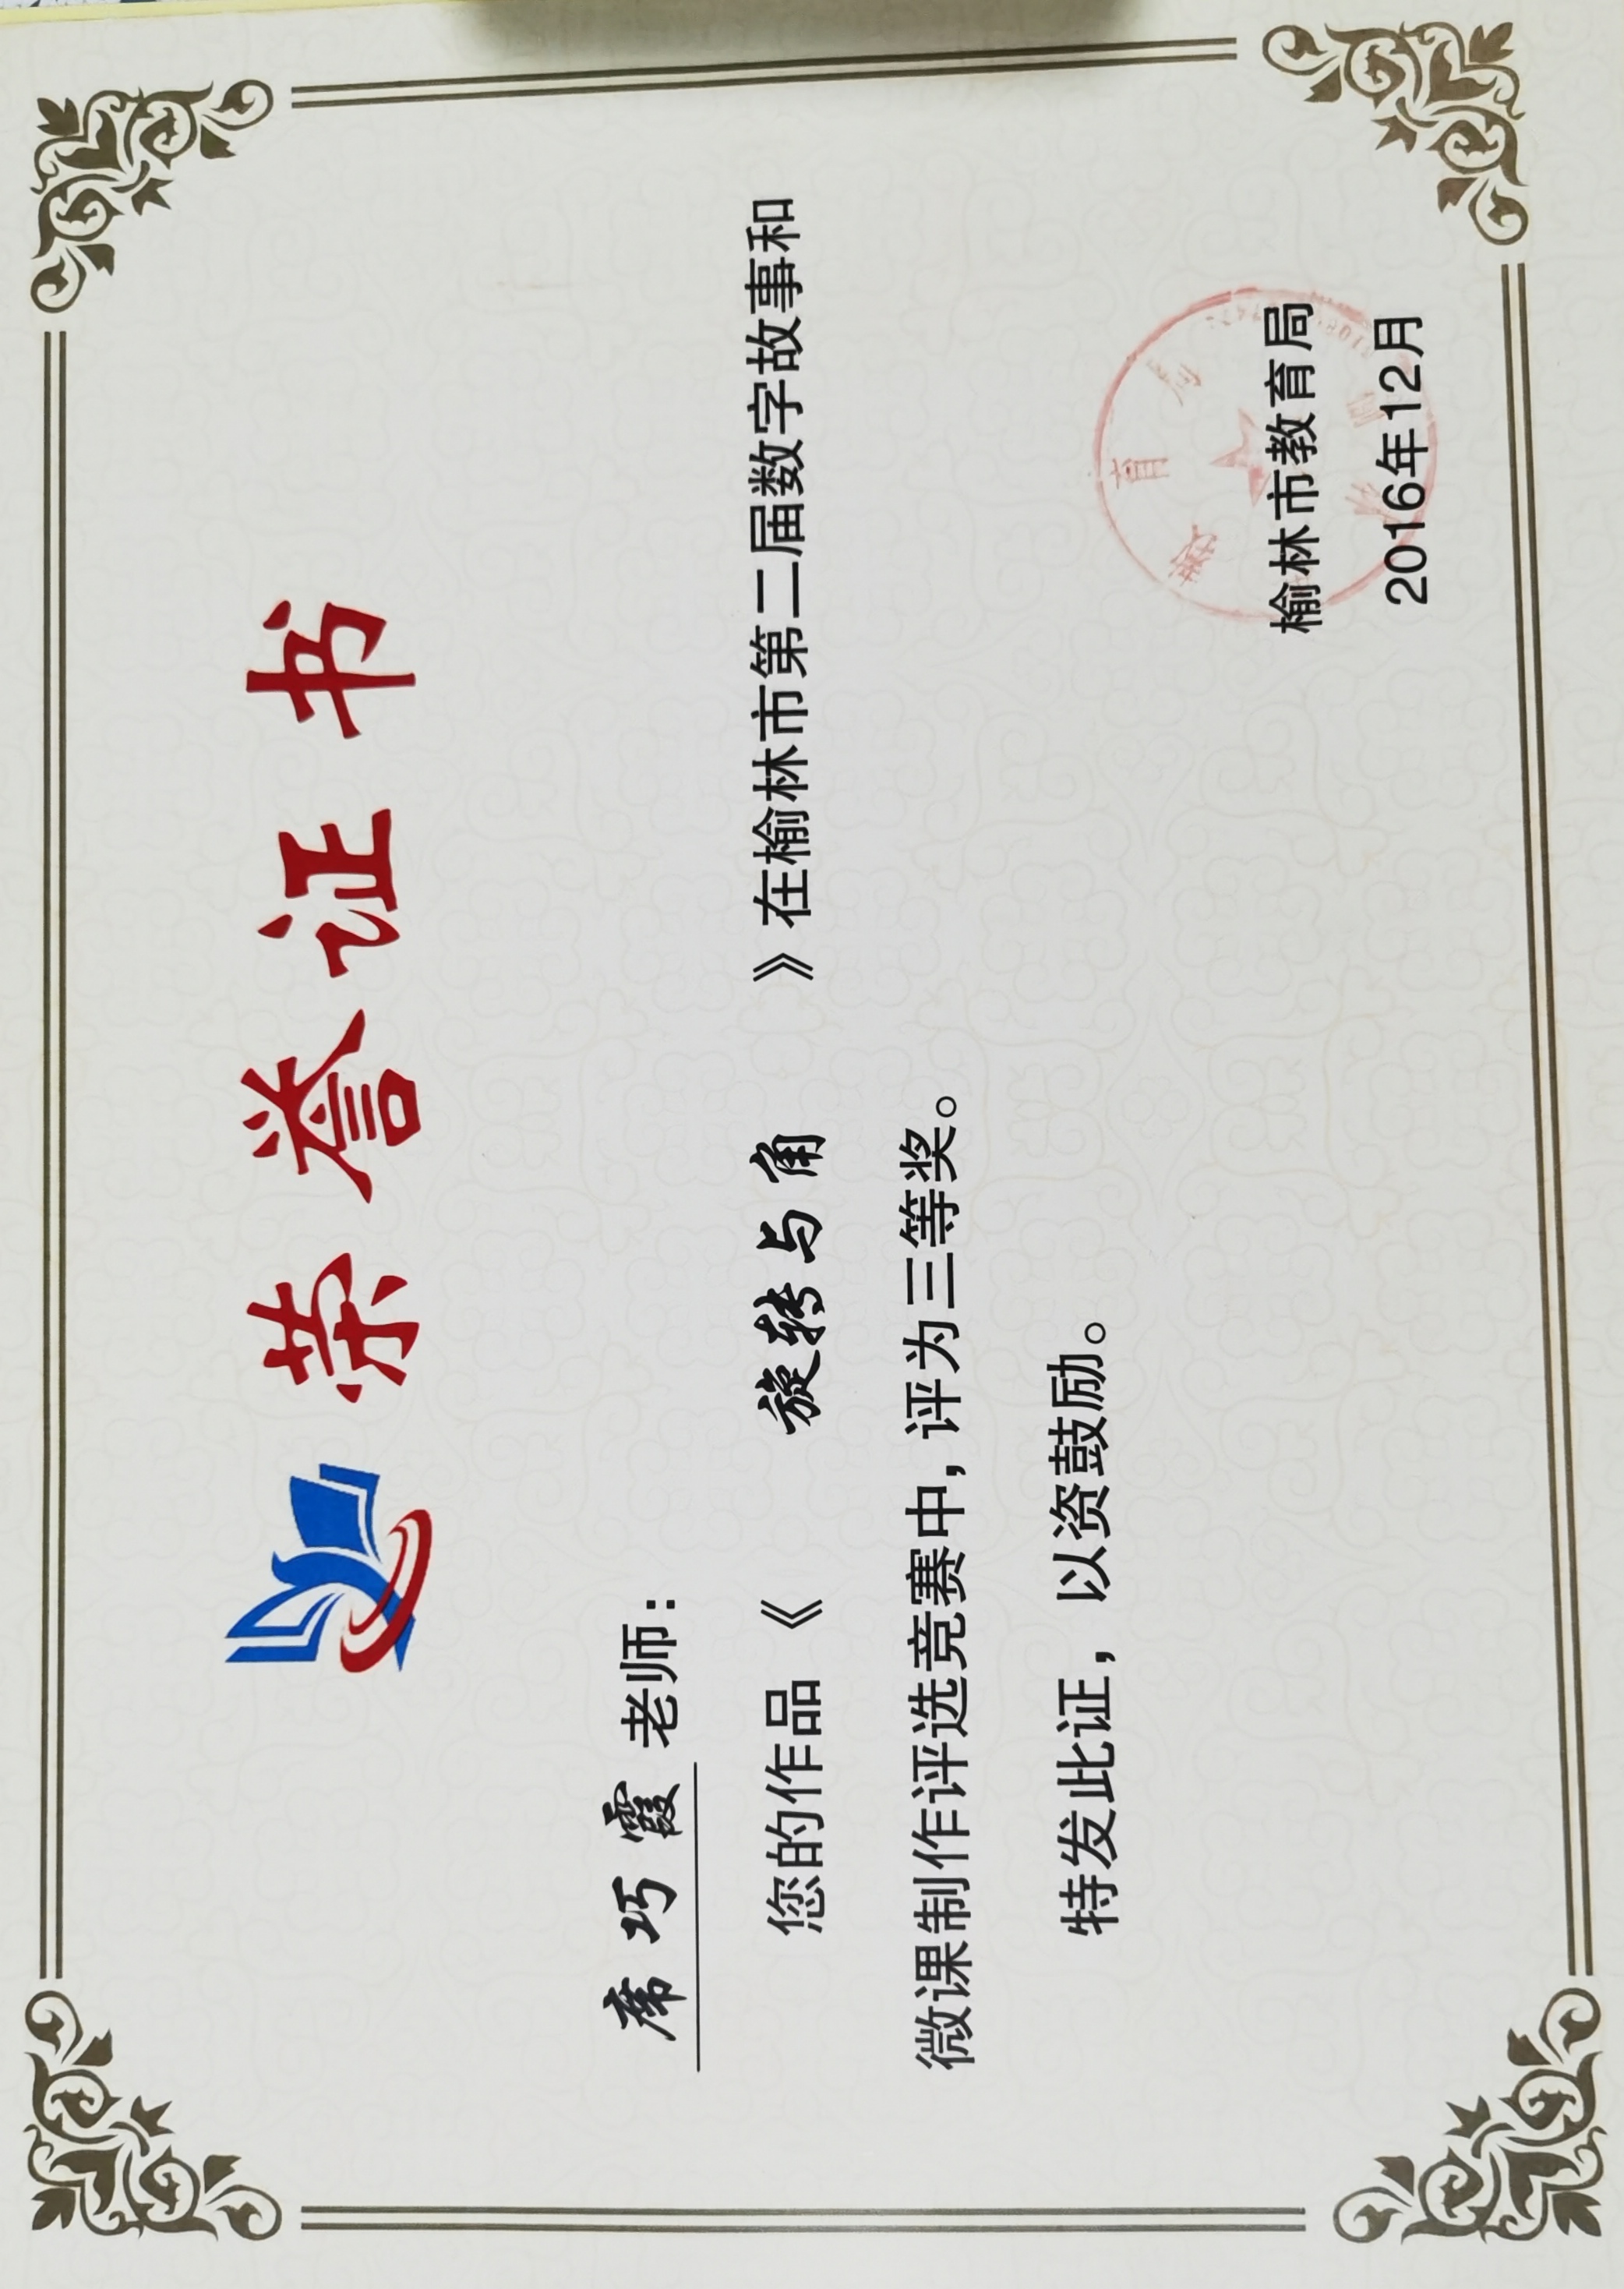 荣誉证书
席巧霞老师：
您的作品《 旋转与角 》在榆林市第二届数字故事和
微课制作评选竞赛中，评为三等奖。
特发此证，以资鼓励。
榆林市教育局
2016年12月
教育局